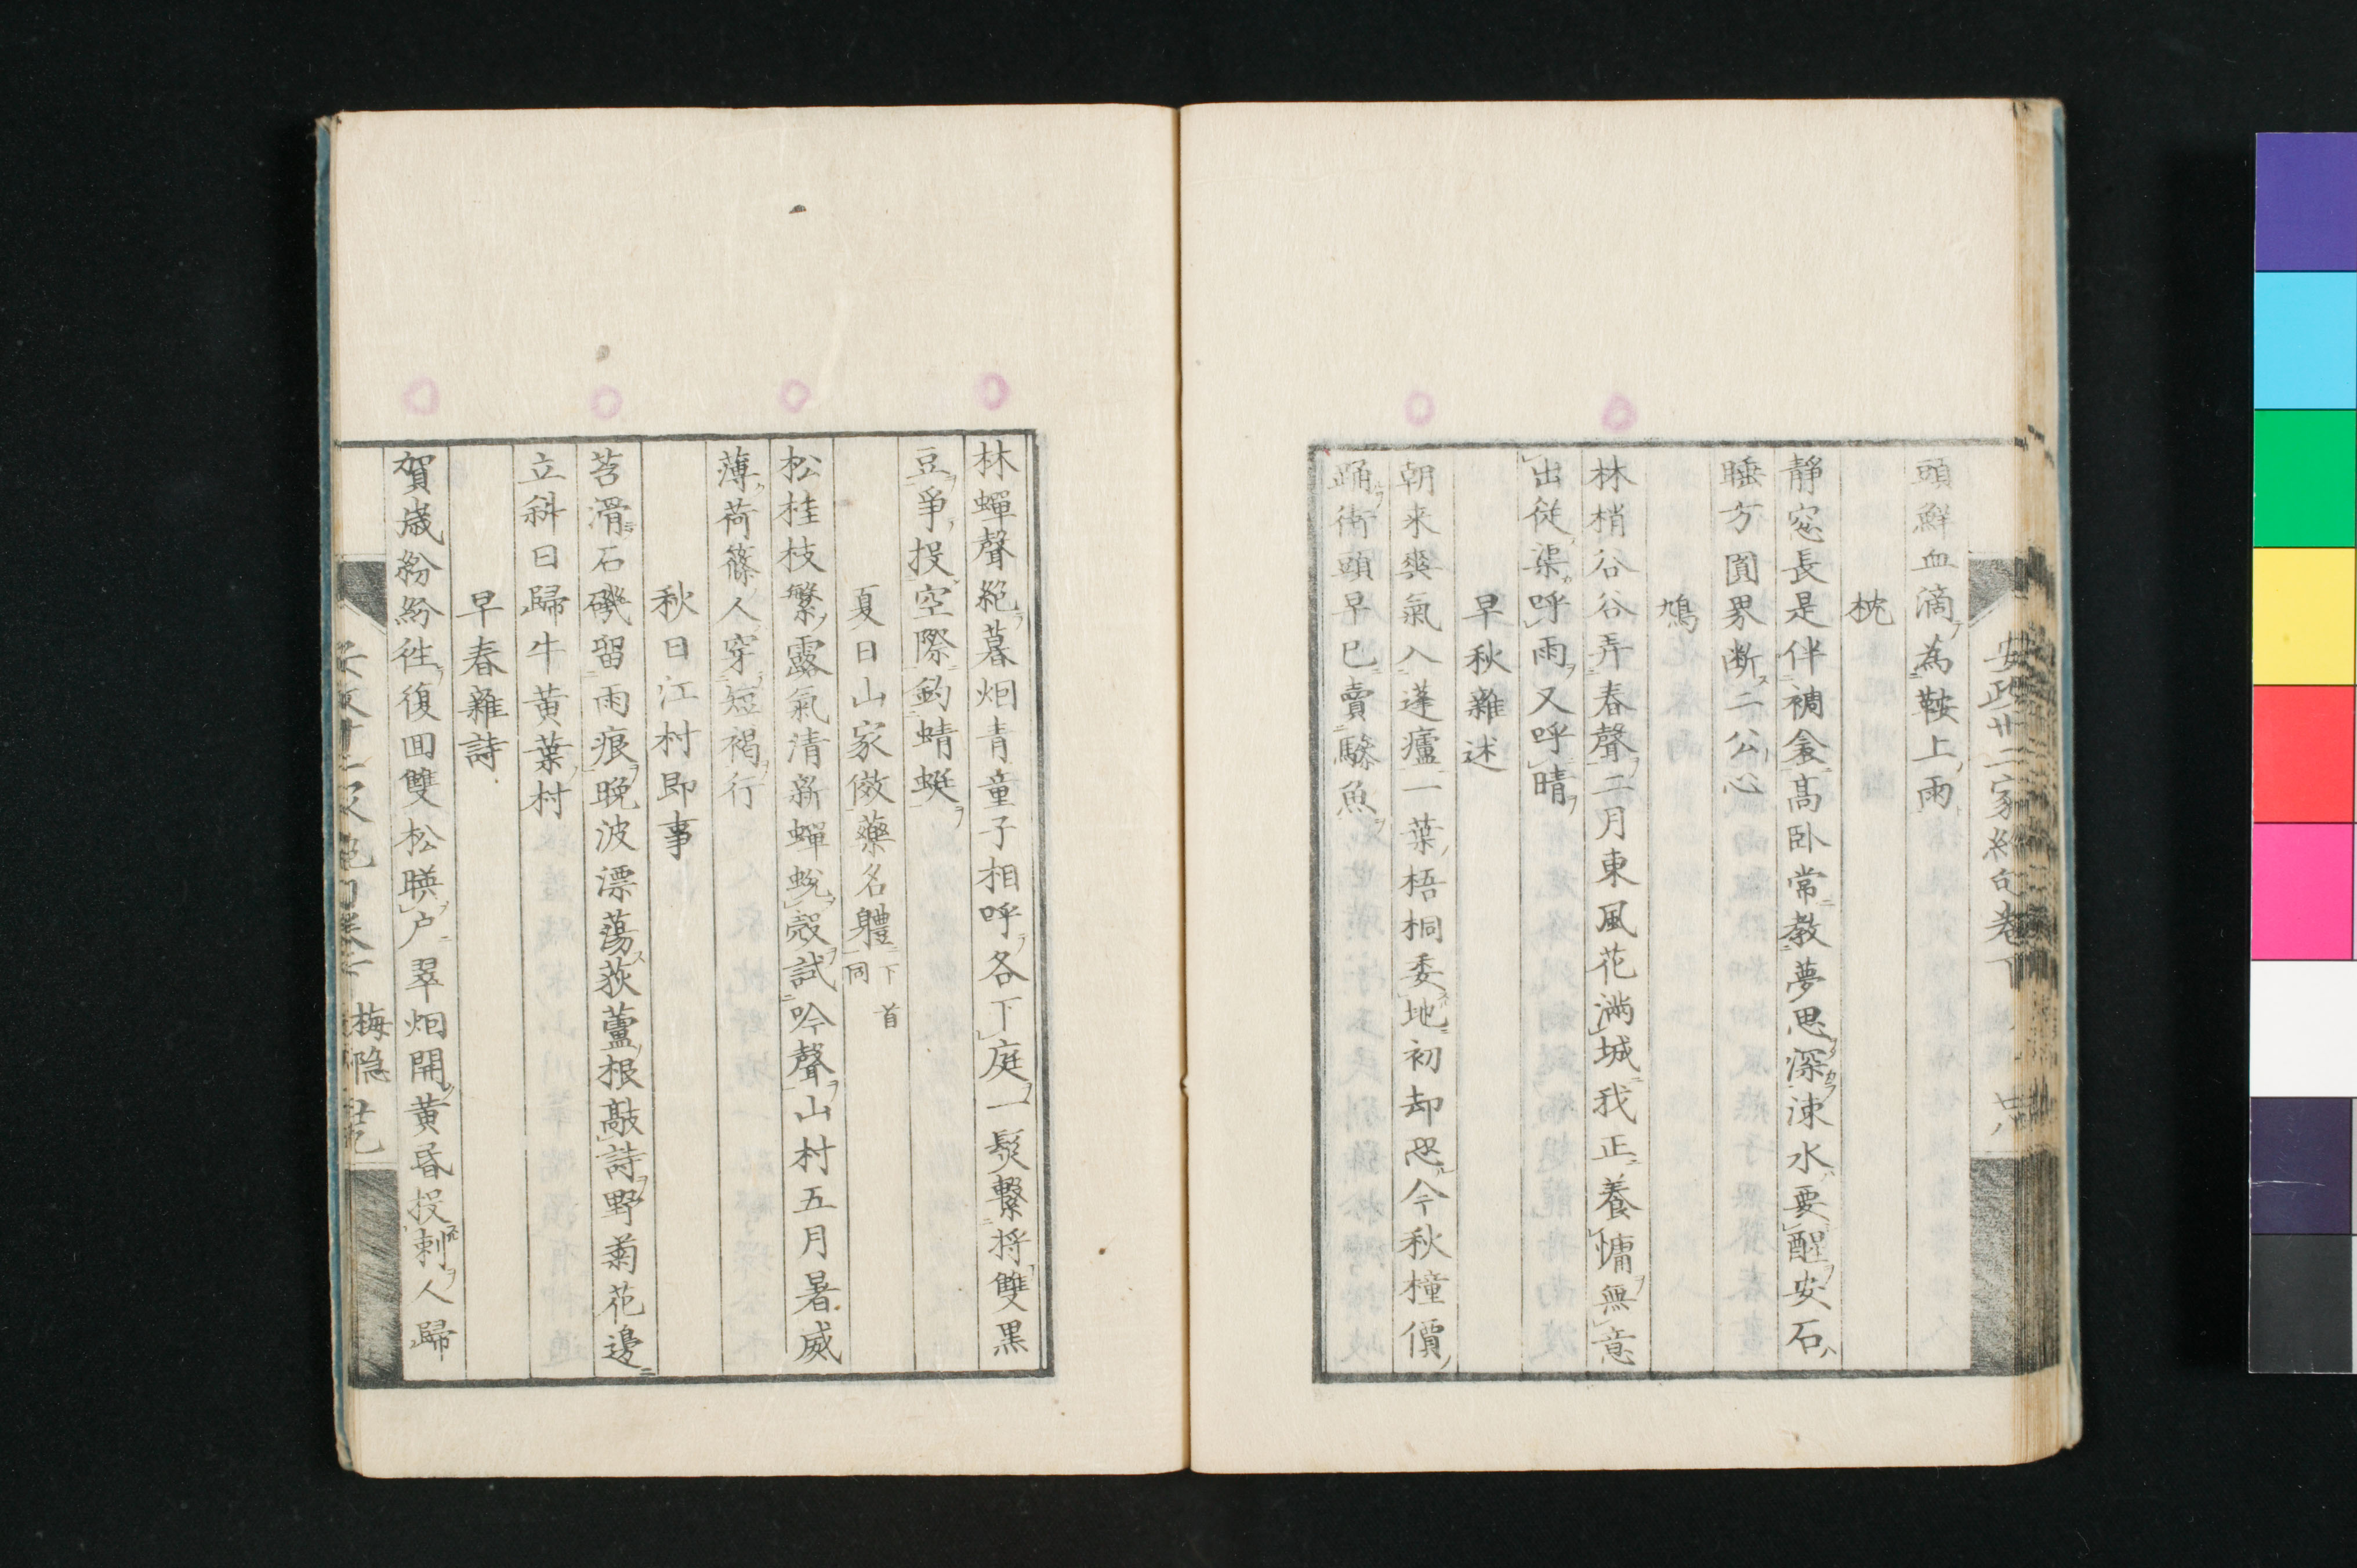 安政卅二家絶句卷下
頭鮮血滴為鞍上雨
枕
靜窓長是伴裯衾高臥常教夢思深涑水要醒安石
睡方圓界断二公心
鳩
林梢谷谷弄春聲二月東風花滿城我正養慵無意
出従渠呼雨又呼晴
早秋雜述
朝来爽氣入蓬廬一葉梧桐委地初却恐今秋橦價
踊街頭早已賣騐魚
林蟬聲絶暮烟青童子相呼各下庭一髮繫将雙黒
豆爭投空際釣蜻蜓
夏日山家傚藥名體下首同
松桂枝繁露氣清新蟬蛻殻試吟聲山村五月暑威
薄荷篠人穿短褐行
秋日江村即事
苔滑石磯留雨痕晚波漂蕩荻蘆根敲詩野菊花邊
立斜日歸牛黄葉村
早春雜詩
賀歳紛紛往復回雙松暎户翠烟開黄昏投刺人歸
梅隐